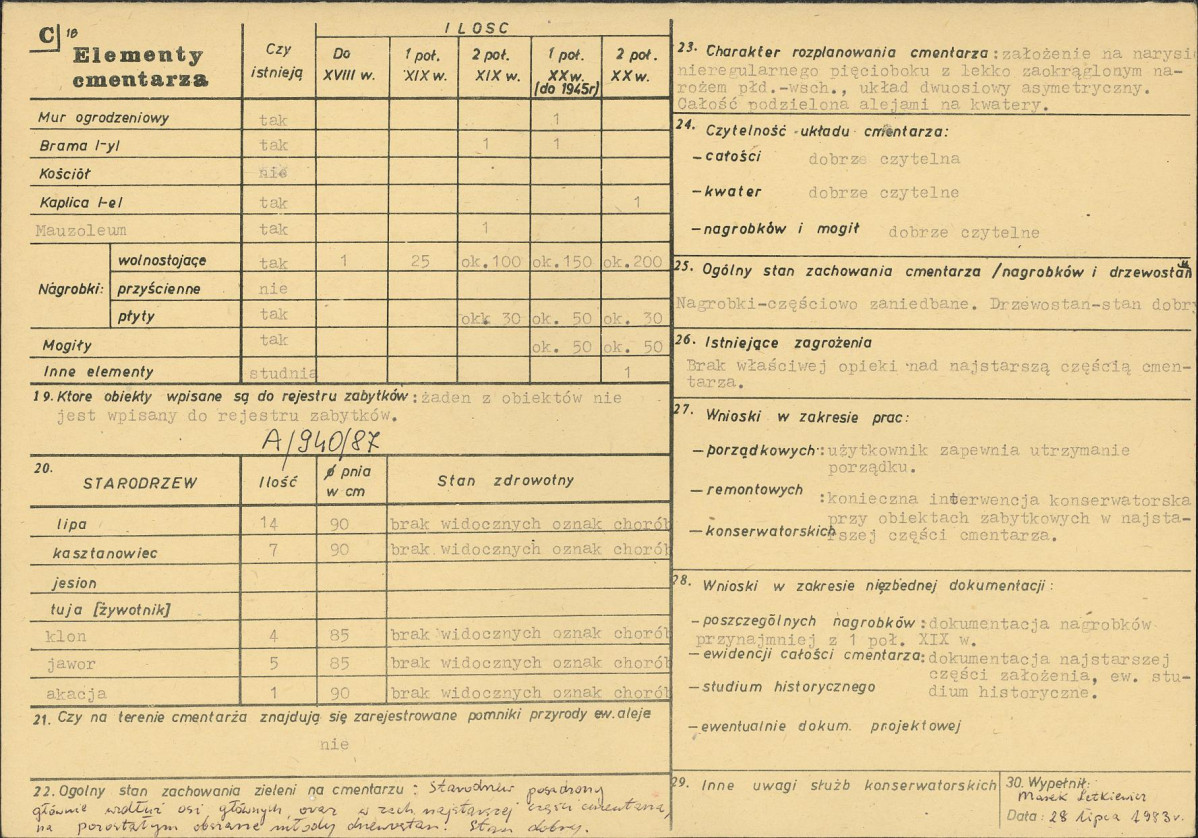 C 18
Elementy cmentarza
Czy istnieją
I L O S C
Do XVIII w.
1 poł. XIX w.
2 poł. XIX w.
1 poł. XX w. (do 1945r)
2 poł. XX w.
Mur ogrodzeniowy tak 1
Brama /-y/ tak 1 1
Kościół nie
Kaplica /-e/ tak 1
Mauzoleum tak 1
Nagrobki: wolnostojące tak 1 25 ok.100 ok.150 ok.200
przyścienne nie
płyty tak okk 30 ok. 50 ok. 30
Mogiły tak ok. 50 ok. 50
Inne elementy studnia 1
19. Ktore obiekty wpisane są do rejestru zabytków: żaden z obiektów nie
jest wpisany do rejestru zabytków.
A/940/87
20. STARODRZEW Ilość ø pnia w cm Stan zdrowotny
lipa 14 90 brak widocznych oznak chorób
kasztanowiec 7 90 brak widocznych oznak chorób
jesion
tuja [żywotnik]
klon 4 85 brak widocznych oznak chorób
jawor 5 85 brak widocznych oznak chorób
akacja 1 90 brak widocznych oznak chorób
21. Czy na terenie cmentarza znajdują się zarejestrowane pomniki przyrody ew. aleje
nie
22. Ogolny stan zachowania zieleni na cmentarzu: Starodrzew posadzony
głównie wzdłuż osi głównych, oraz w zach najstarszej części cmentarza,
na pozostałym obszarze młody drzewostan. Stan dobry.
23. Charakter rozplanowania cmentarza: założenie na narysie
nieregularnego pięcioboku z lekko zaokrąglonym na-
rożem płd.-wsch., układ dwuosiowy asymetryczny.
Całość podzielona alejami na kwatery.
24. Czytelność układu cmentarza:
– całości dobrze czytelna
– kwater dobrze czytelne
– nagrobków i mogił dobrze czytelne
25. Ogólny stan zachowania cmentarza /nagrobków i drzewostan
Nagrobki-częściowo zaniedbane. Drzewostan-stan dobry
26. Istniejące zagrożenia
Brak właściwej opieki nad najstarszą częścią cmen-
tarza.
27. Wnioski w zakresie prac:
– porządkowych: użytkownik zapewnia utrzymanie
porządku.
– remontowych
:konieczna interwencja konserwatorska
przy obiektach zabytkowych w najsta-
– konserwatorskich rszej części cmentarza.
28. Wnioski w zakresie niezbednej dokumentacji:
– poszczególnych nagrobków: dokumentacja nagrobków
przynajmniej z 1 poł. XIX w.
– ewidencji całości cmentarza: dokumentacja najstarszej
części założenia, ew. stu-
– studium historycznego dium historyczne.
– ewentualnie dokum. projektowej
29. Inne uwagi służb konserwatorskich
30. Wypełnił:
Marek Letkiewicz
Data: 28 lipca 1983 r.